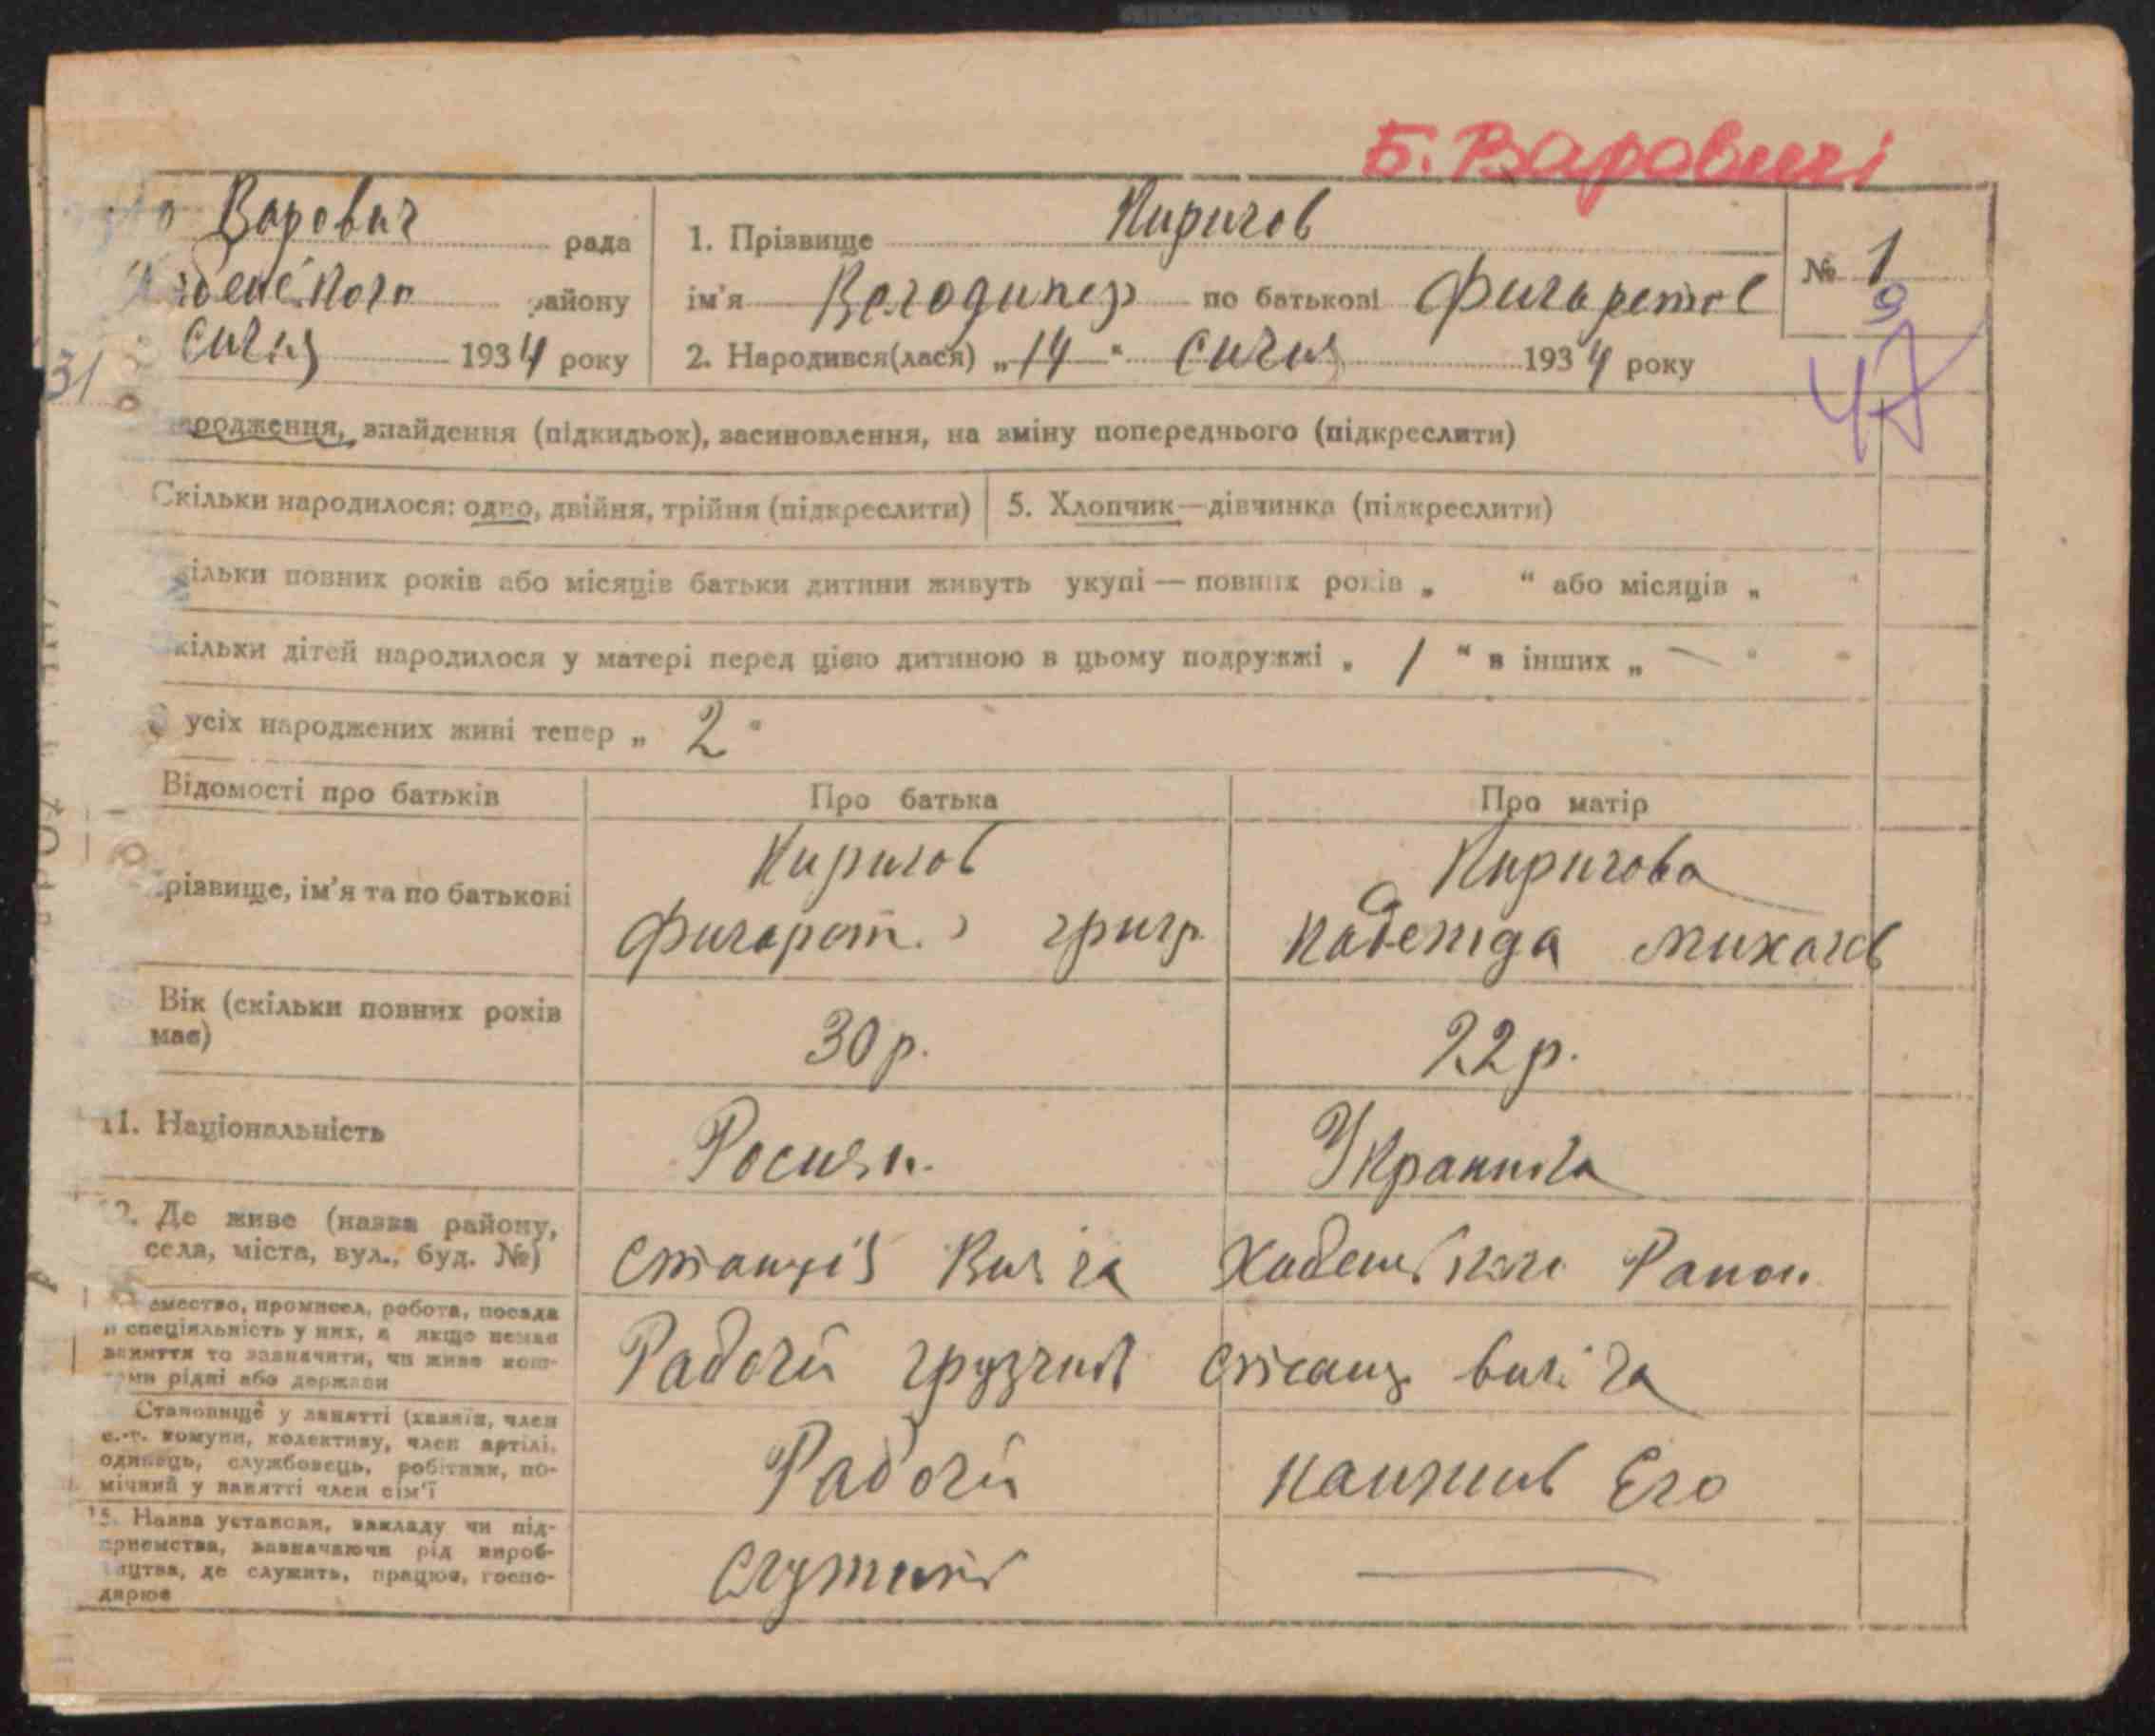 Б. Варовичі
Варович рада
района
січня 1934 року
31
1. Прізвище Киричов
ім'я Володимер по батькові Филаретов
2. Народився(лася) „14“ січня 1934 року
№ 1
9
47
родження, знайдення (підкидьок), засиновлення, на зміну попереднього (підкреслити)
Скільки народилося: одно, двійня, трійня (підкреслити)
5. Хлопчик—дівчинка (підкреслити)
кільки повних років або місяців батьки дитини живуть укупі — повних років „ “ або місяців „
кільки дітей народилося у матері перед цією дитиною в цьому подружжі „ 1 “ в інших „ — “
З усіх народжених живі тепер „ 2 “
Відомості про батьків Про батька Про матір
різвище, ім'я та по батькові
Киричов
Филарет григ
Киричова
Надежда михайлов
Вік (скільки повних років має)
30 р.
22 р.
11. Національність
Росиян
Украинка
12. Де живе (назва району,
села, міста, вул., буд. №)
Станція Вильча Хабенського Район
емество, промисел, робота, посада
й спеціяльність у них, а якщо немає
заняття то зазначити, чи живе кош-
ами рідні або держави
Рабочий грузчик станц. вильча
Становище у занятті (хазяїн, член
с.-г. комуни, колективу, член артілі,
одинець, службовець, робітник, по-
мічний у занятті член сім'ї
Рабочий
Его
15. Назва установи, закладу чи під-
приємства, зазначаючи рід вироб-
ництва, де служить, працює, госпо-
дарює